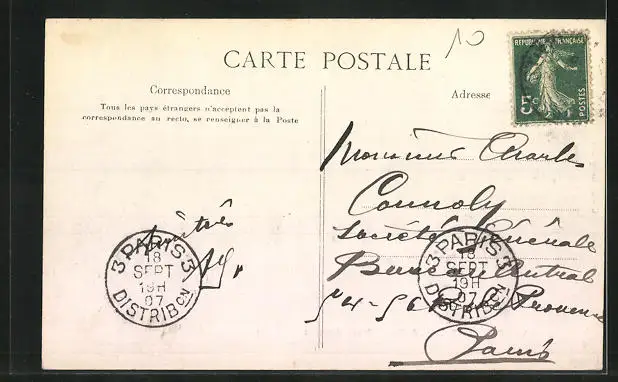 10
CARTE POSTALE
REPUBLIQUE FRANÇAISE
5c
POSTES
Correspondance
Adresse
Tous les pays étrangers n'acceptent pas la
correspondance au recto, se renseigner à la Poste
Monsieur Charles
Connoly
Société Générale
Bureau Central
54-56 Provence
Paris
3 PARIS 3
18
SEPT
19H
07
DISTRIBON
3 PARIS 3
18
SEPT
19H
07
DISTRIBON